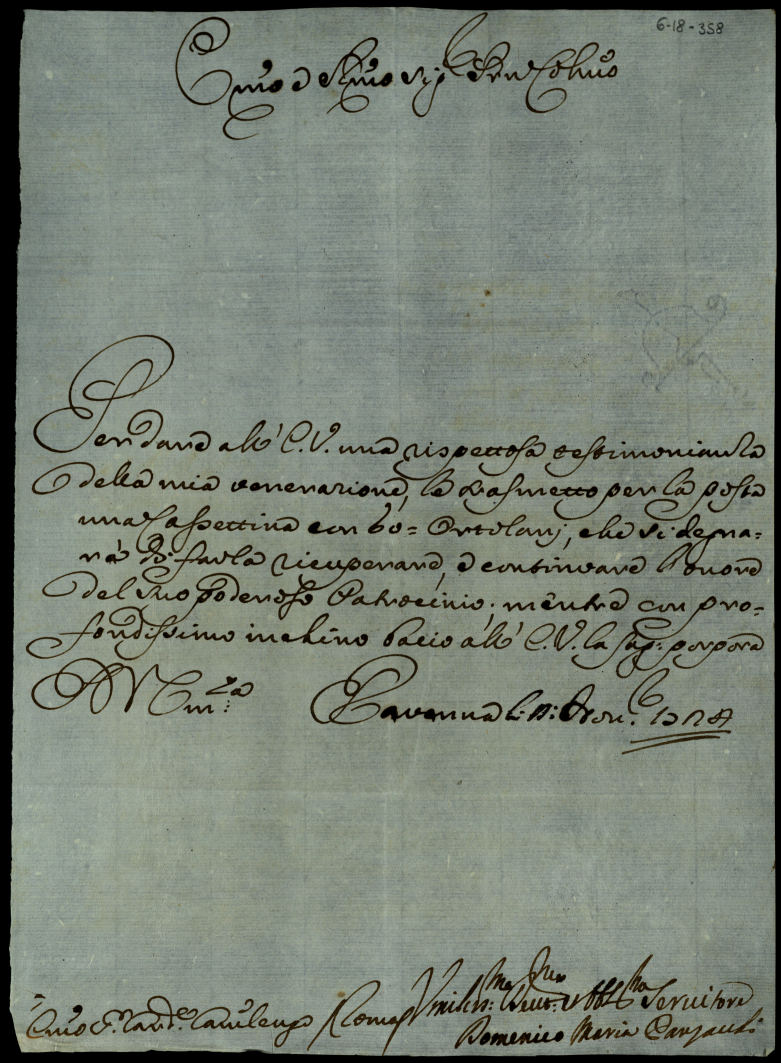 6-18-358
Em̃o e Rm̃o Sig.r Prn Colm̃o
Per dare all' E. V. una rispettosa testimonianza
della mia venerazione, le trasmetto per la posta
una Cassettina con 60= Ortolanj, che si degna=
rà di farla ricuperare, e continuare l'onore
del Suo poderoso Patrocinio; mentre con pro=
fondissimo inchino bacio all' E. V. la sag: porpora
Di V. Em.za Ravenna li: Nov.
Em̃o S.r Card.e Camlengo Roma Umiliss.mo Devot. Obbl.mo Servitore
Domenico Maria